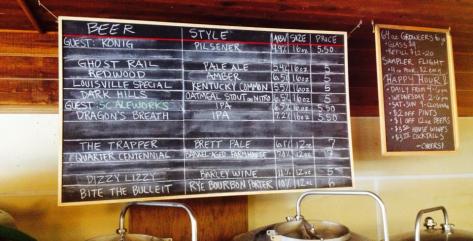 BEER STYLE ABV SIZE PRICE
GUEST: KÖNIG PILSENER 4.9% 16oz 5.50
GHOST RAIL PALE ALE 16oz 5
REDWOOD AMBER 16oz 5
LOUISVILLE SPECIAL KENTUCKY COMMON 16oz 5
DARK HILL OATMEAL STOUT ON NITRO 16oz 5
GUEST: SCALEWORKS IPA 16oz 5.50
DRAGON'S BREATH IPA 16oz 5
THE TRAPPER BRETT PALE 12oz 7
QUARTER CENTENNIAL BARREL AGED FARMHOUSE 12oz 7
DIZZY LIZZY BARLEY WINE 11% 12oz 5
BITE THE BULLEIT RYE BOURBON PORTER 12oz 6
64oz GROWLERS
GLASS $4
REFILL $12-20
SAMPLER FLIGHT
HAPPY HOUR
DAILY FROM
SAT-SUN
$2 OFF PINTS
$1 OFF 12oz BEERS
HOUSE WINES
COCKTAILS
CHEERS!